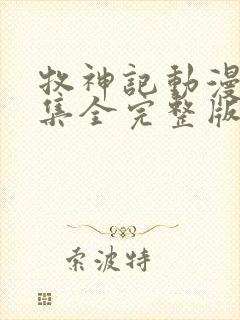 牧神記動漫
集全完整版
索波特